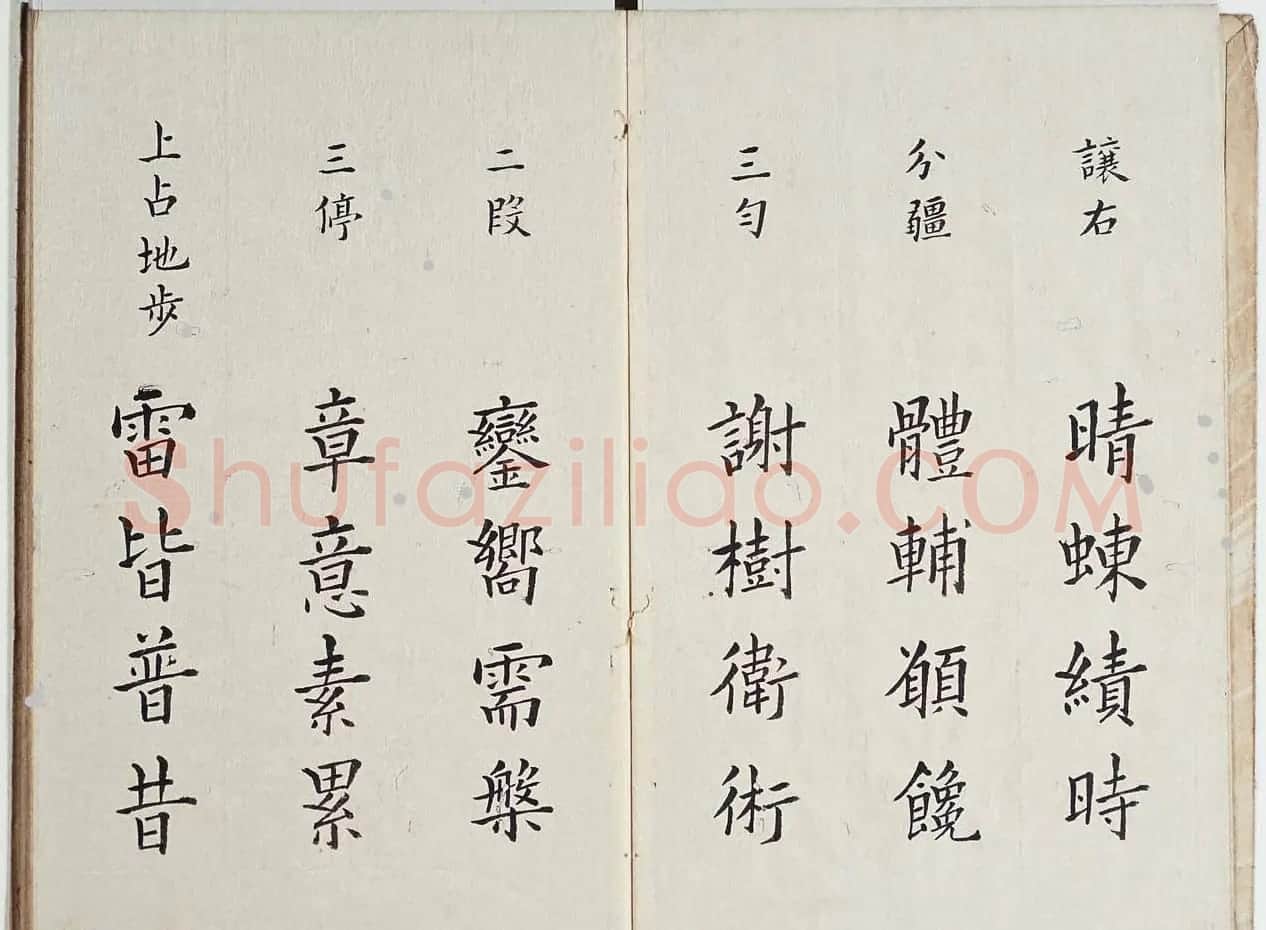 讓右 晴蝀績時
分疆 體輔頥饞
三勻 謝樹衛術
二段 鑾嚮需槃
三停 章意素累
上占地步 雷皆普昔
Shufaziliao.COM